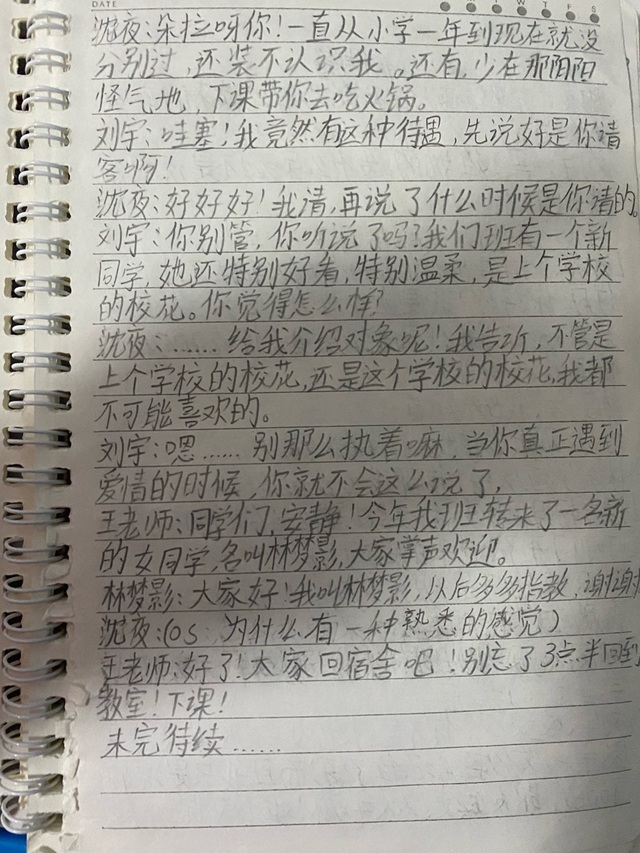 DATE
M T W T F S
沈夜:朵拉呀你!一直从小学一年到现在就没
分别过,还装不认识我。还有,少在那阴阳
怪气地,下课带你去吃火锅。
刘宇:哇塞!我竟然有这种待遇,先说好是你请
客啊!
沈夜:好好好!我请,再说了什么时候是你请的,
刘宇:你别管,你听说了吗?我们班有一个新
同学,她还特别好看,特别温柔,是上个学校
的校花。你觉得怎么样?
沈夜:……给我介绍对象呢!我告诉,不管是
上个学校的校花,还是这个学校的校花,我都
不可能喜欢的。
刘宇:嗯……别那么执着嘛,当你真正遇到
爱情的时候,你就不会这么说了,
王老师:同学们,安静!今年我班转来了一名新
的女同学,名叫林梦影,大家掌声欢迎。
林梦影:大家好!我叫林梦影,以后多多指教,谢谢
沈夜:(os 为什么有一种熟悉的感觉)
王老师:好了!大家回宿舍吧!别忘了3点半回到
教室!下课!
未完待续……